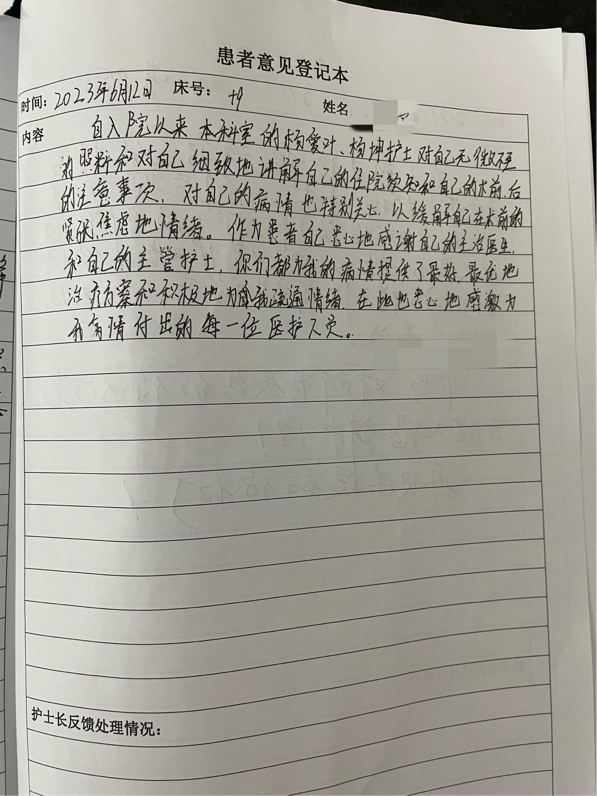 患者意见登记本
时间：2023年6月12日 床号：+9 姓名
内容 自入院以来 本科室的杨爱叶、杨坤护士对自己无微不至
的照料和对自己细致地讲解自己的住院须知和自己的术前、后
的注意事项，对自己的病情也特别关心，以缓解自己在术前的
紧张焦虑地情绪。作为患者自己衷心地感谢自己的主治医生
和自己的主管护士，你们都为我的病情提供了最好、最优地
治疗方案和积极地为我疏通情绪，在此也衷心地感激为
我病情付出的每一位医护人员。
护士长反馈处理情况：